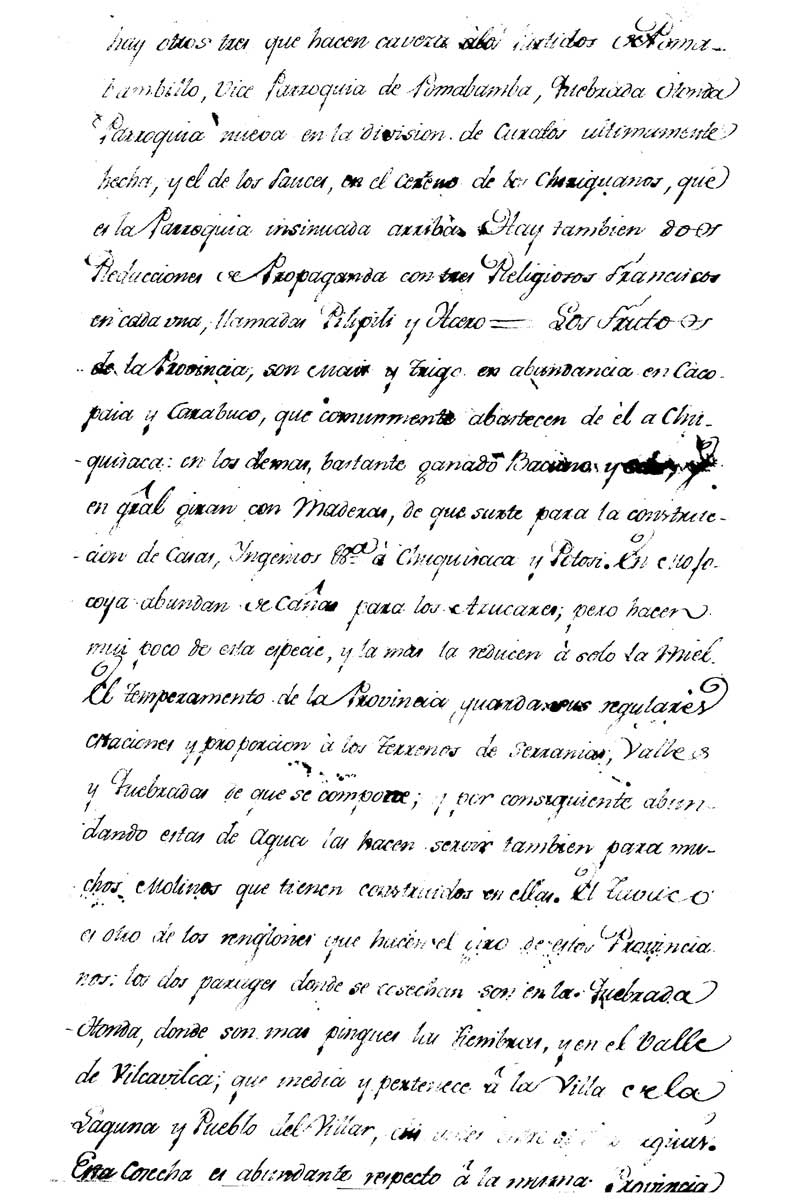 hay otros tres que hacen cavera á los Partidos de Poma-
bambillo, Vice Parroquia de Pomabamba, Quebrada Honda
Parroquia nueva en la division de Curatos ultimamente
hecha, y el de los Sauces, en el Centro de los Chiriguanos, que
es la Parroquia insinuada arriba. Hay tambien dos
Reducciones de Propaganda con tres Religiosos Franciscos
en cada una, llamadas Pilipili y Acero = Los Frutos
de la Provincia, son Mais y Trigo en abundancia en
y Tarabuco, que comunmente abastecen de él a Chu-
-quisaca: en los demas, bastante ganado Bacuno y
en grâl giran con Maderas, de que surte para la construc-
-cion de Casas, Ingenios &ª á Chuquisaca y Potosi. En
abundan de Cañas para los Azucares; pero hacen
mui poco de esta especie, y la mas la reducen à solo la Miel.
El Temperamento de la Provincia guarda sus regulares
estaciones y proporcion à los Terrenos de Serranias, Valles
y Quebradas de que se compone; y por consiguiente abun-
dando estas de Agua las hacen servir tambien para mu-
chos Molinos que tienen construidos en ellas. El
es otro de los renglones que hacen el giro de estos Provincia
nos: los dos parages donde se cosechan son en la Quebrada
Honda, donde son mas pingues las Siembras, y en el Valle
de Vilcavilca; que media y pertenece â la Villa de la
Laguna y Pueblo del Villar,
Esta Cosecha es abundante respecto â la misma Provincia